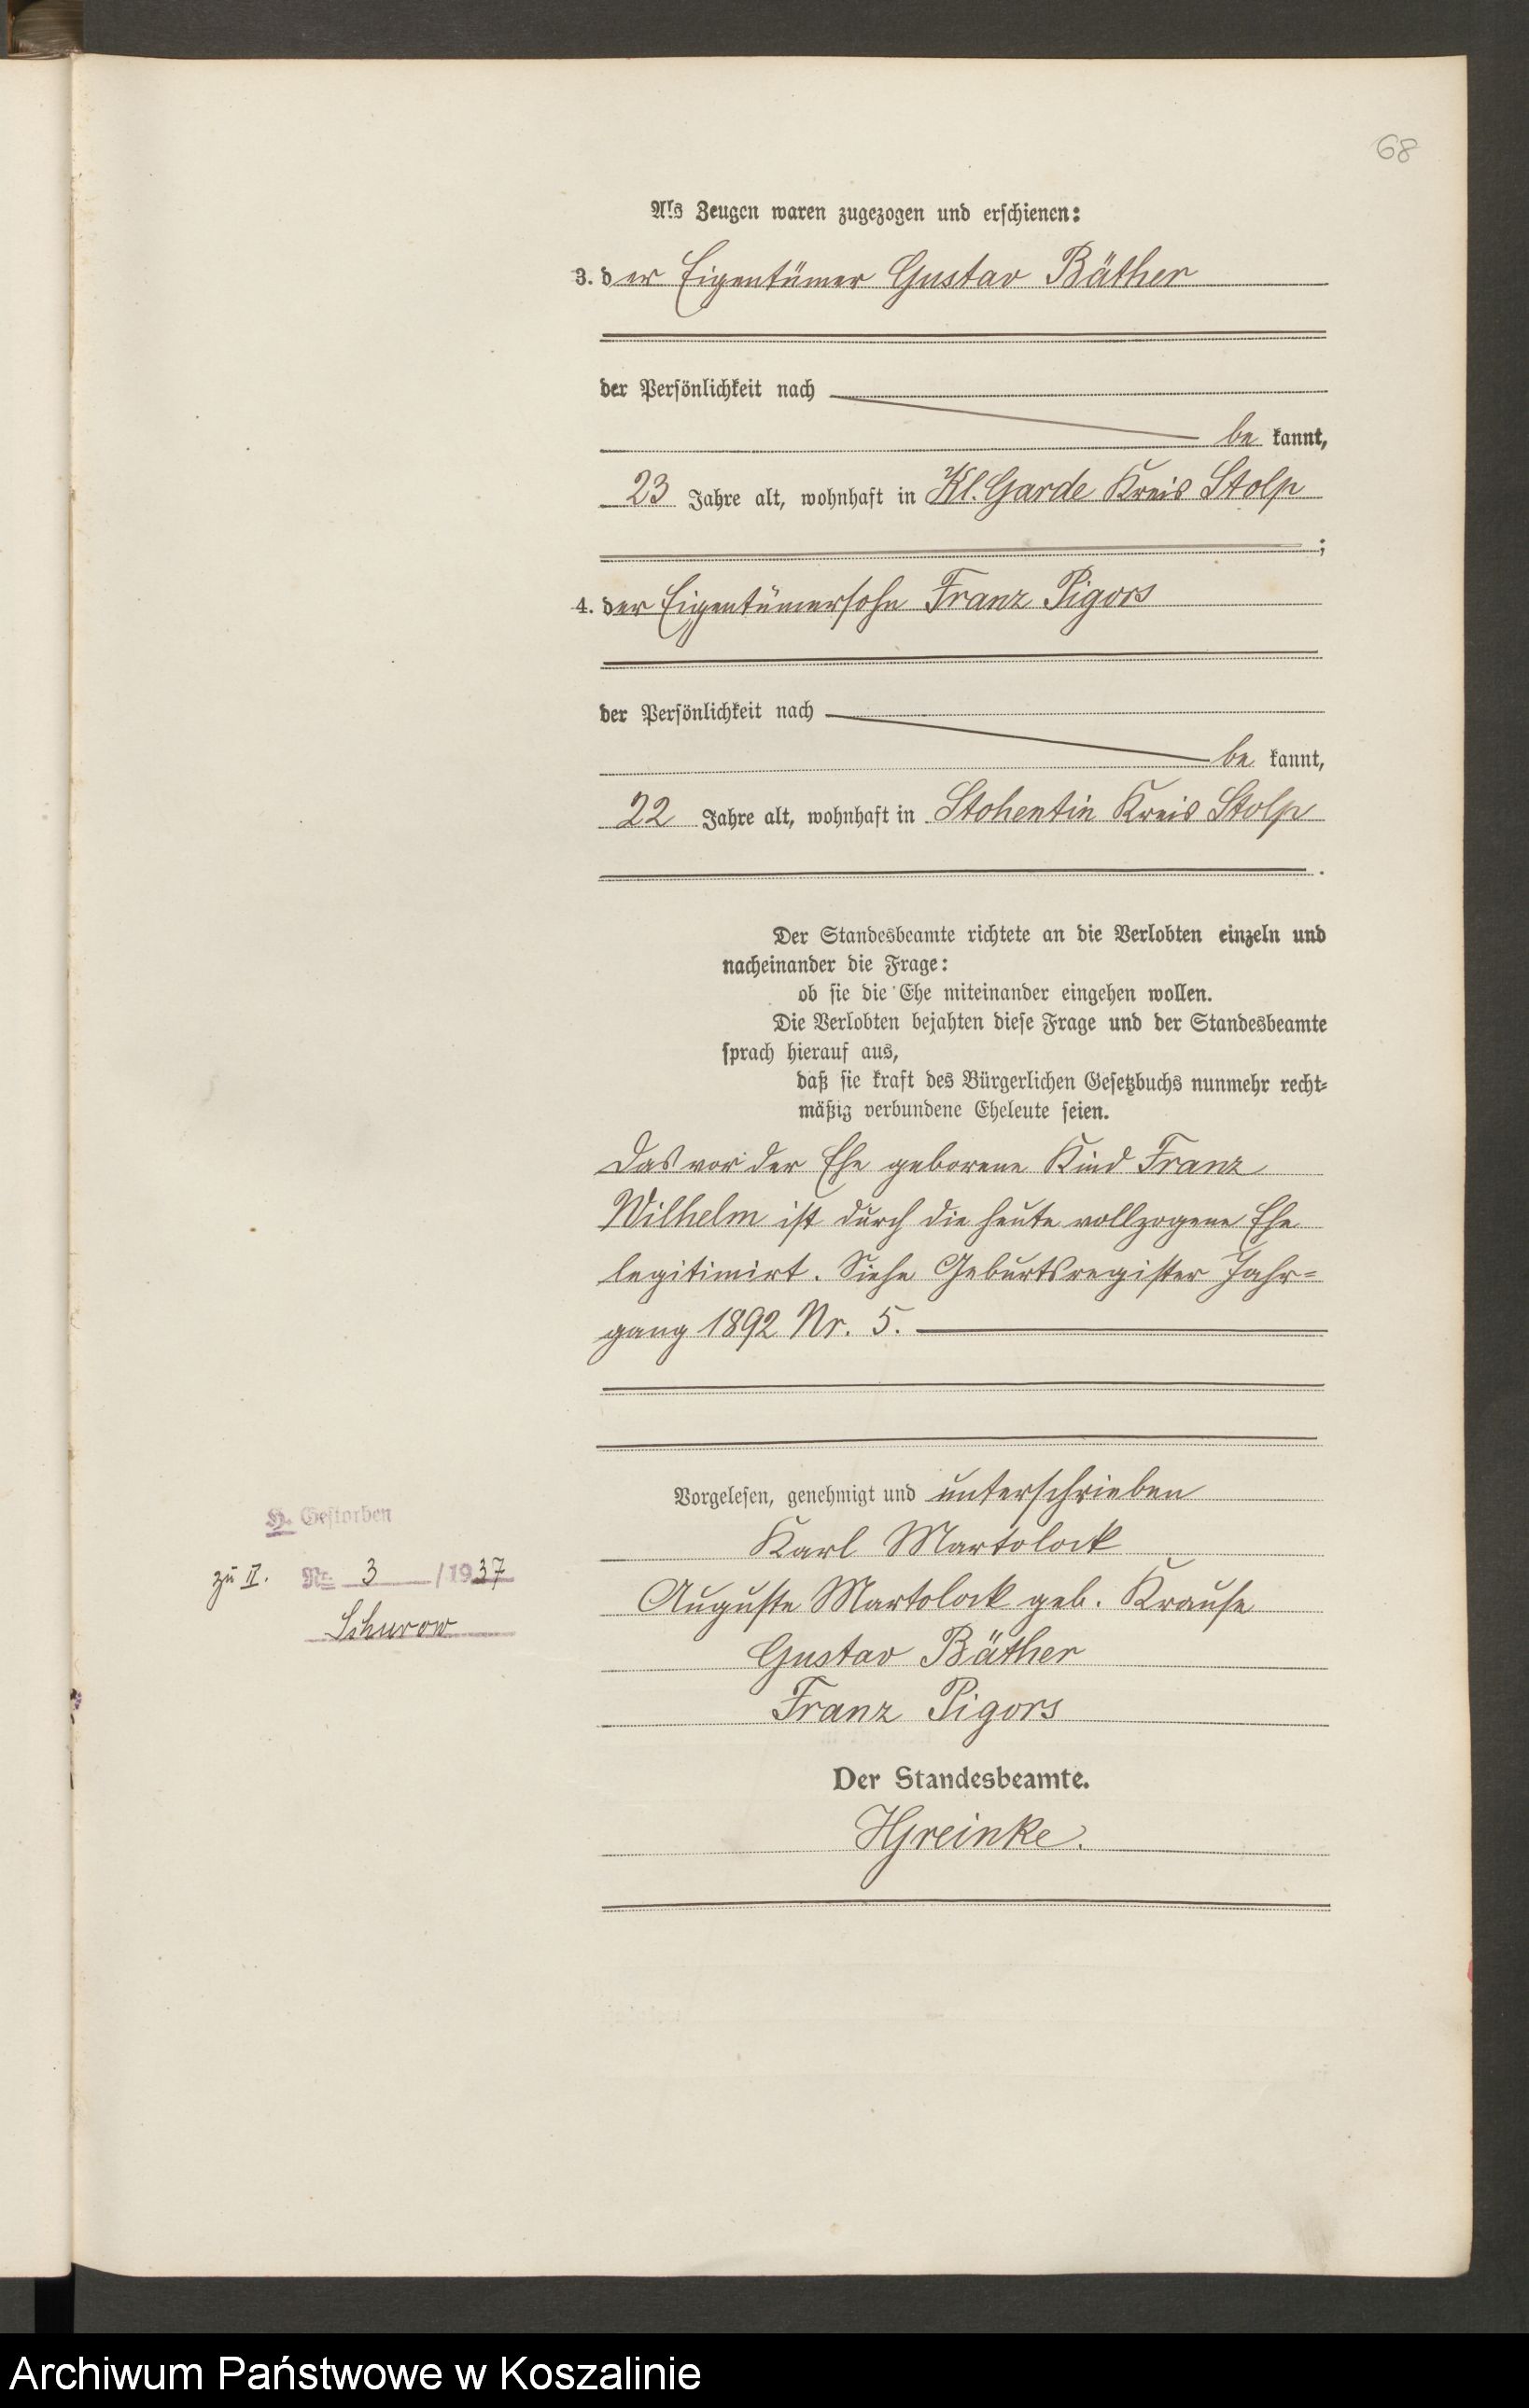 68
Als Zeugen waren zugezogen und erschienen:
3. der Eigentümer Gustav Bäther
der Persönlichkeit nach
be kannt,
23 Jahre alt, wohnhaft in Kl. Garde Kreis Stolp
;
4. der Eigentümersohn Franz Pigors
der Persönlichkeit nach
be kannt,
22 Jahre alt, wohnhaft in Stohentin Kreis Stolp
.
Der Standesbeamte richtete an die Verlobten einzeln und
nacheinander die Frage:
ob sie die Ehe miteinander eingehen wollen.
Die Verlobten bejahten diese Frage und der Standesbeamte
sprach hierauf aus,
daß sie kraft des Bürgerlichen Gesetzbuchs nunmehr recht-
mäßig verbundene Eheleute seien.
Das vor der Ehe geborene Kind Franz
Wilhelm ist durch die heute vollzogene Ehe
legitimirt. Siehe Geburtsregister Jahr-
gang 1892 Nr. 5.
Vorgelesen, genehmigt und unterschrieben
Karl Martolock
Auguste Martolock geb. Krause
Gustav Bäther
Franz Pigors
Der Standesbeamte.
HGreinke.
H. Gestorben
zu II. Nr. 3 /1937
Schurow
Archiwum Państwowe w Koszalinie